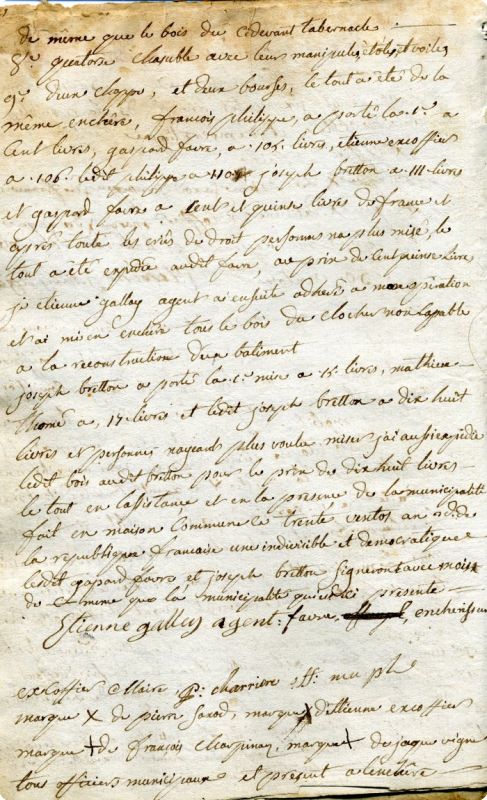 de même que le bois du cidevant tabernacle
8.° quatorse chasuble avec leurs manipules, etoles, et voile,
9.° deux chappe, et deux bourses, le tout a été de la
même enchère, françois philippe, a porté la 1.e a
Cent livres, gaspard favre, a 105. livres, etienne excoffier
a 106. ledit philippe a 110 joseph bretton a 111 livres
et gaspard favre a Cent et quinse livres de france, et
apres toute les criés de droit personne na plus misé, le
tout a eté expedié audit favre, au prix de Cent quinse livres
je etienne gallay agent ai ensuite adheré a operation
et ai mis en enchère tous le bois du clocher non Capable
a la reconstruction d'un batiment
joseph bretton a porté la 1.e mise a 15 livres, mathieu
thomé a, 17 livres et ledit joseph bretton a dix huit
livres et personnes nayant plus voulu miser j'ai aussi expedié
ledit bois audit bretton pour le prix de dix huit livres
le tout en lassistance et en la presence de la municipalité
fait en maison Commune ce trente ventos an 2d. de
la republique francaise une indivisible et democratique
ledit gaspard favre et joseph bretton signeront avec moi
de meme que la municipalité ici présente
Etienne gallay agent. favre, encherisseur
excoffier Maire, p. charriere off. mu
marque X de pierre favod, marque X d'Etienne excoffier
marque + de françois Charpinay, marque + de jaque vigne
tous officiers municipaux et présent a lenchère